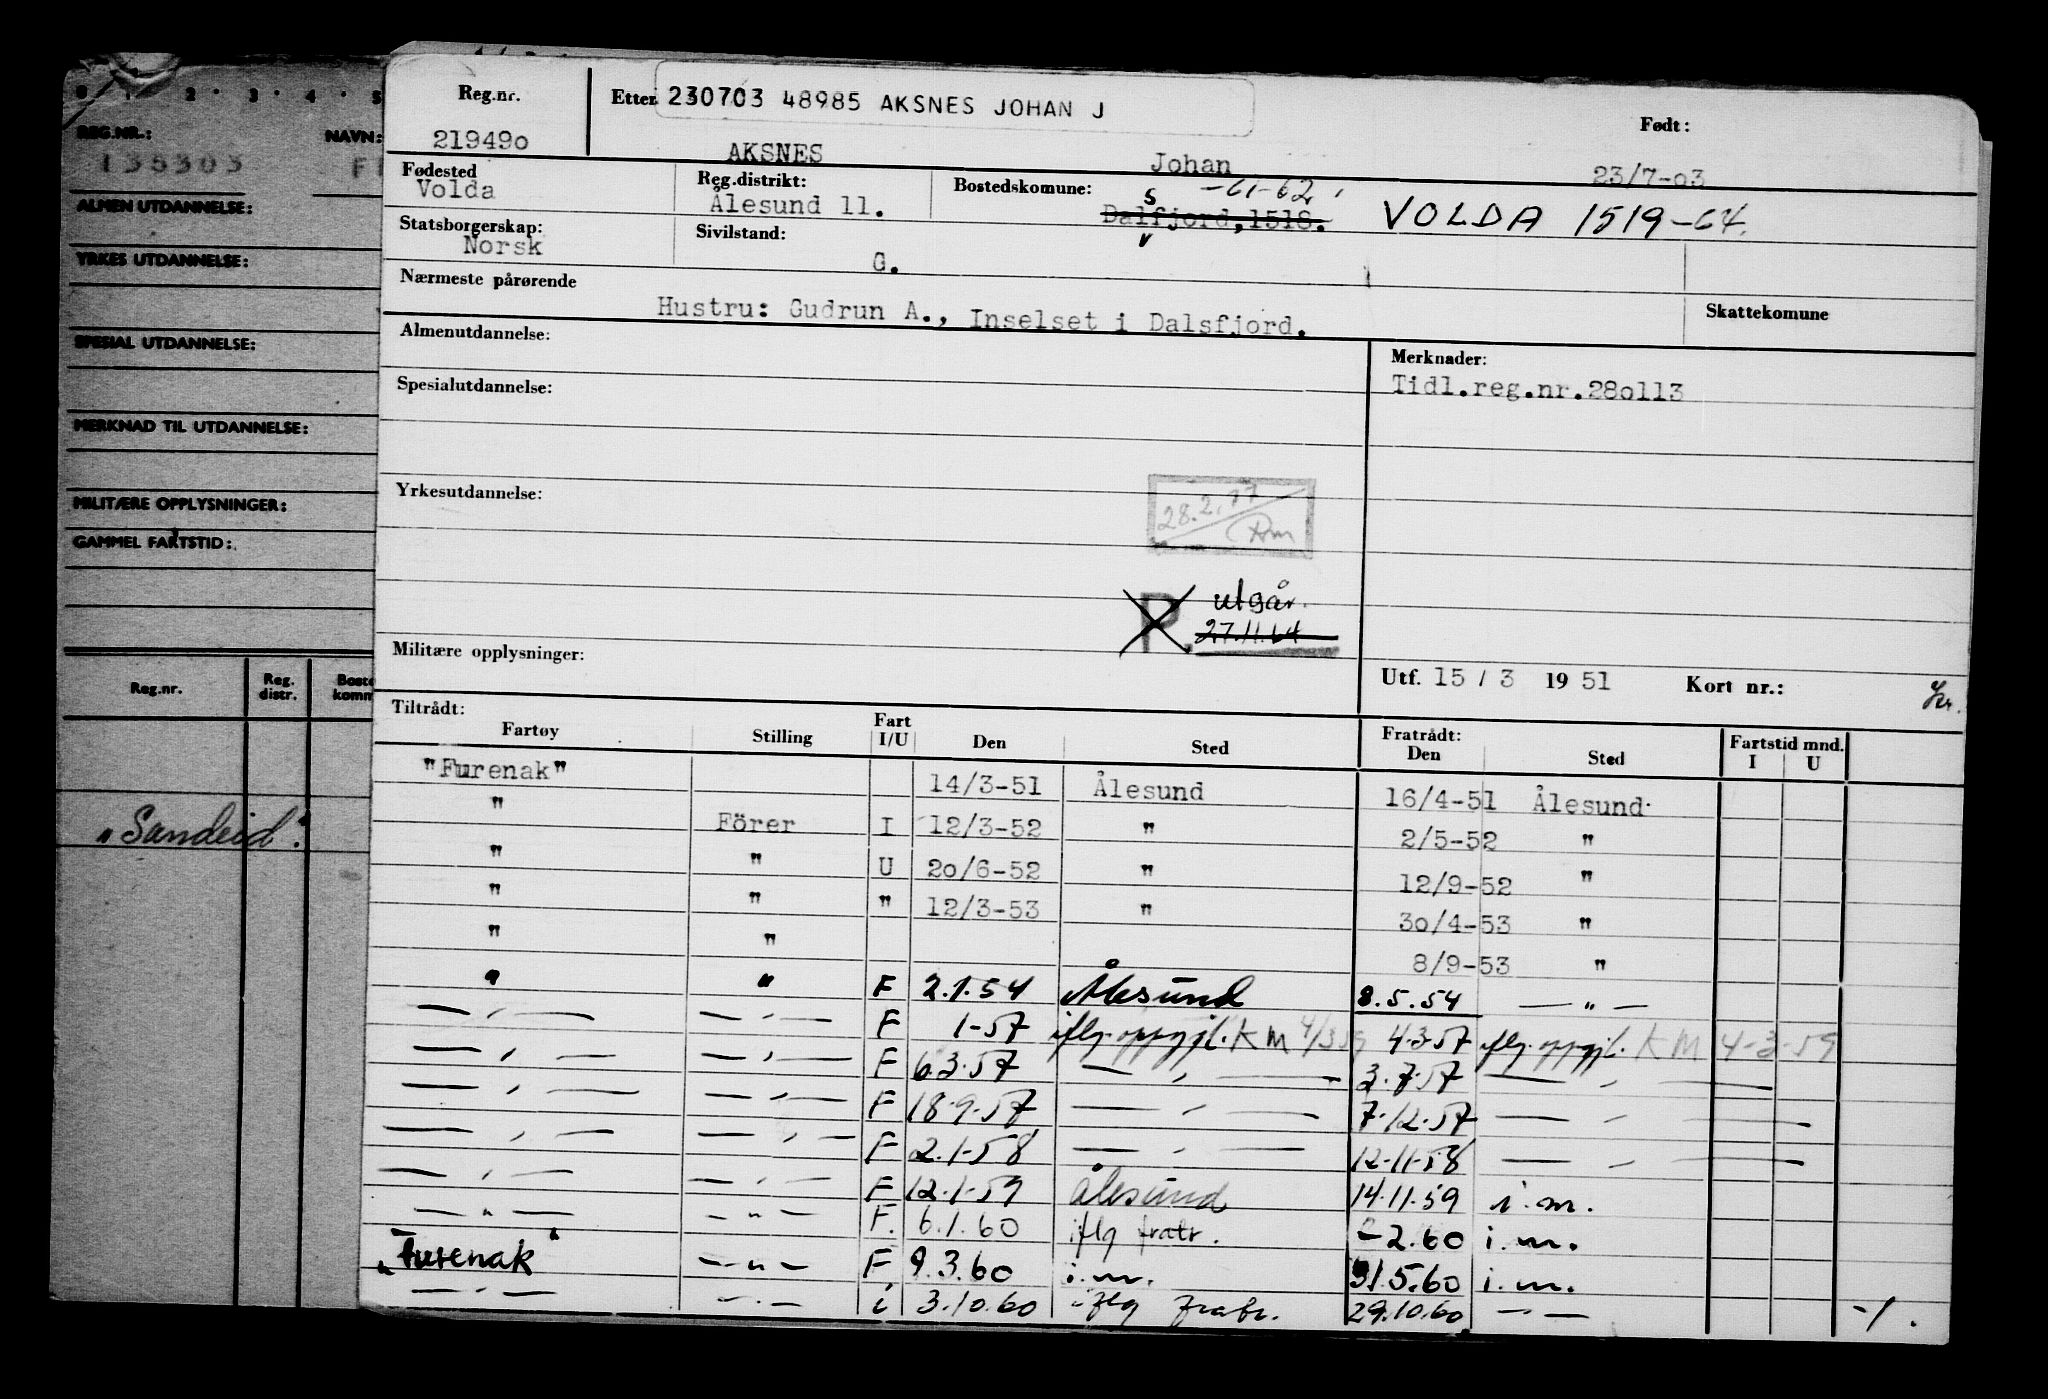 0 1 2 3 4 5
REG.NR.: NAVN:
135303
ALMEN UTDANNELSE:
YRKES UTDANNELSE:
SPESIAL UTDANNELSE:
MERKNAD TIL UTDANNELSE:
MILITÆRE OPPLYSNINGER:
GAMMEL FARTSTID:
Reg.nr. Reg. distr.
"Sandeid".
Reg.nr. Etter 230703 48985 AKSNES JOHAN J Født:
219490 AKSNES Johan 23/7-03
Fødested Reg.distrikt: Bostedskomune: s -61-62
Volda Ålesund 11. Dalfjord,1518. VOLDA 1519-64.
Statsborgerskap: Sivilstand:
Norsk G.
Nærmeste pårørende
Hustru: Gudrun A., Inselset i Dalsfjord. Skattekomune
Almenutdannelse: Merknader:
Spesialutdannelse: Tidl.reg.nr.280113
Yrkesutdannelse: 28.2.77
P. utgår.
27.11.64
Militære opplysninger: Utf. 15 / 3 19 51 Kort nr.:
Tiltrådt: Fratrådt:
Fartøy Stilling Fart I/U Den Sted Den Sted Fartstid mnd. I U
"Furenak" 14/3-51 Ålesund 16/4-51 Ålesund
" Förer I 12/3-52 " 2/5-52 "
" " U 20/6-52 " 12/9-52 "
" " " 12/3-53 " 30/4-53 "
" " 8/9-53 "
" " F 2.1.54 Ålesund 8.5.54 — " —
— " — — " — F 1-57 iflg. oppgjl. KM 4/3 59 4-3-57 iflg. oppgjl. KM 4-3-59
— " — — " — F 6.3.57 — " — 2.7.57 — " —
— " — — " — F 18.9.57 — " — 7.12.57 — " —
— " — — " — F 2.1.58 — " — 12.11.58 — " —
— " — — " — F 12.1.59 Ålesund 14.11.59 i.m.
— " — — " — F. 6.1.60 iflg fratr. - 2.60 i.m.
"Furenak" — " — F 9.3.60 i.m. 31.5.60 i.m.
— " — — " — i 3.10.60 iflg fratr. 29.10.60 — " — -1.